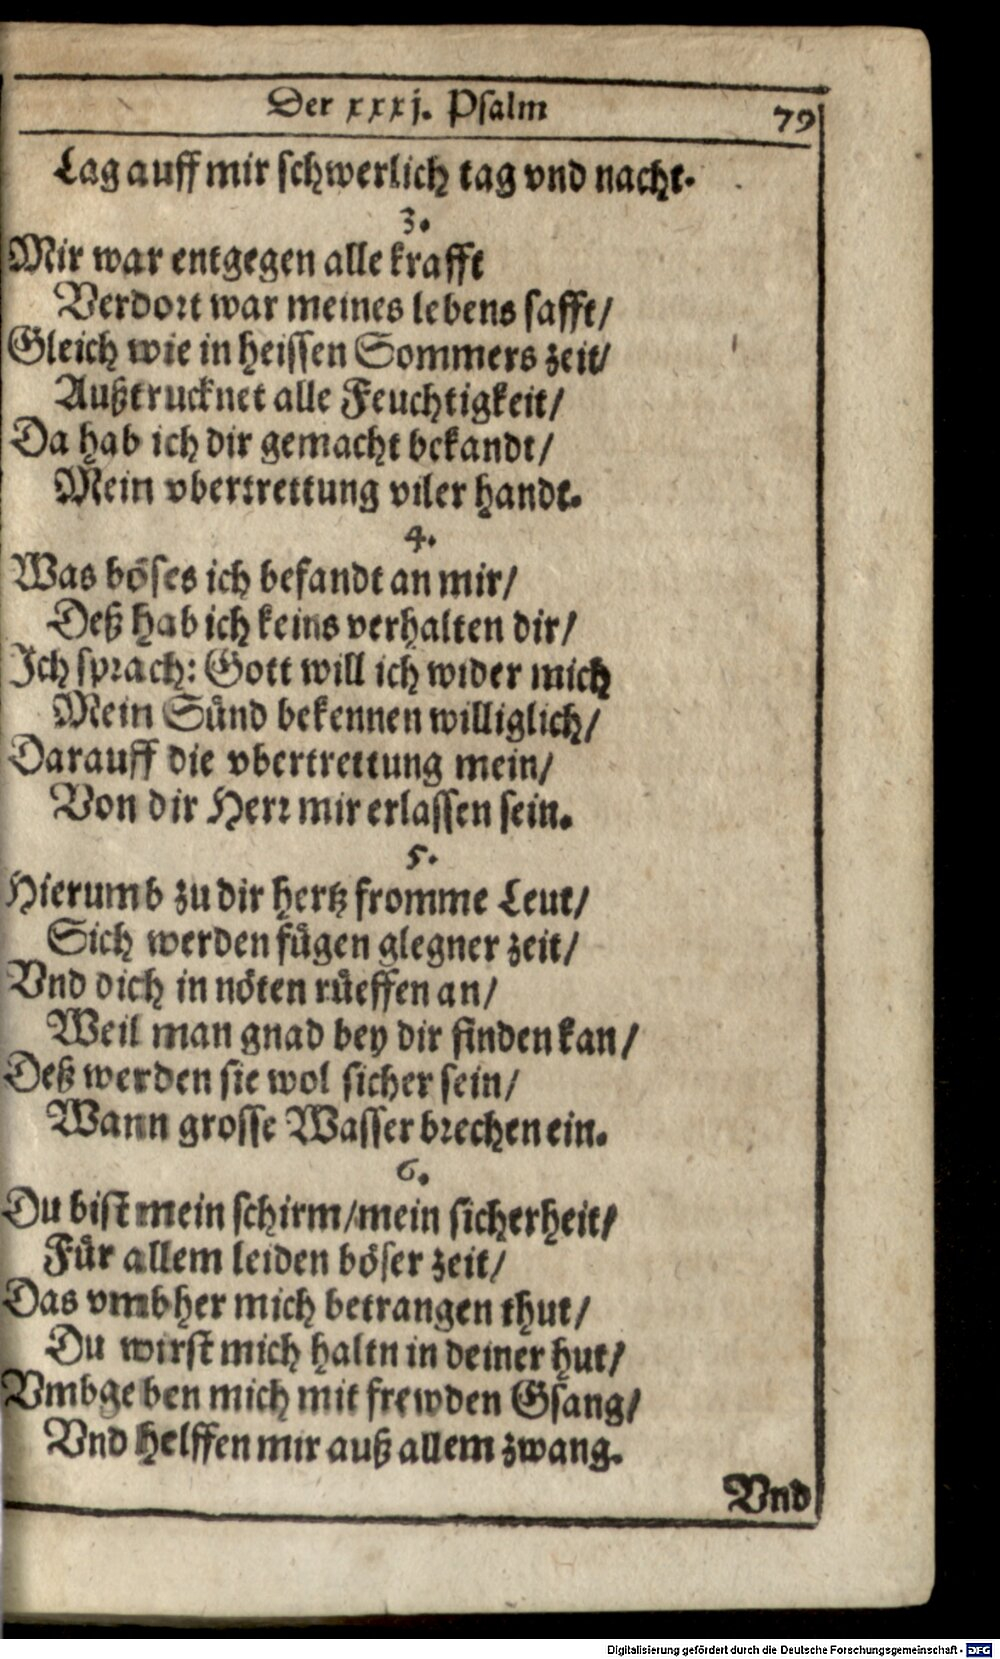 Der xxxj. Psalm 79
Lag auff mir schwerlich tag vnd nacht.
3.
Mir war entgegen alle krafft
Verdort war meines lebens safft/
Gleich wie in heissen Sommers zeit/
Außtrucknet alle Feuchtigkeit/
Da hab ich dir gemacht bekandt/
Mein vbertrettung viler handt.
4.
Was böses ich befandt an mir/
Deß hab ich keins verhalten dir/
Ich sprach: Gott will ich wider mich
Mein Sünd bekennen williglich/
Darauff die vbertrettung mein/
Von dir Herr mir erlassen sein.
5.
Hierumb zu dir hertz fromme Leut/
Sich werden fügen glegner zeit/
Vnd dich in nöten rüeffen an/
Weil man gnad bey dir finden kan/
Deß werden sie wol sicher sein/
Wann grosse Wasser brechen ein.
6.
Du bist mein schirm/mein sicherheit/
Für allem leiden böser zeit/
Das vmbher mich betrangen thut/
Du wirst mich haltn in deiner hut/
Vmbgeben mich mit frewden Gsang/
Vnd helffen mir auß allem zwang.
Vnd
Digitalisierung gefördert durch die Deutsche Forschungsgemeinschaft - DFG